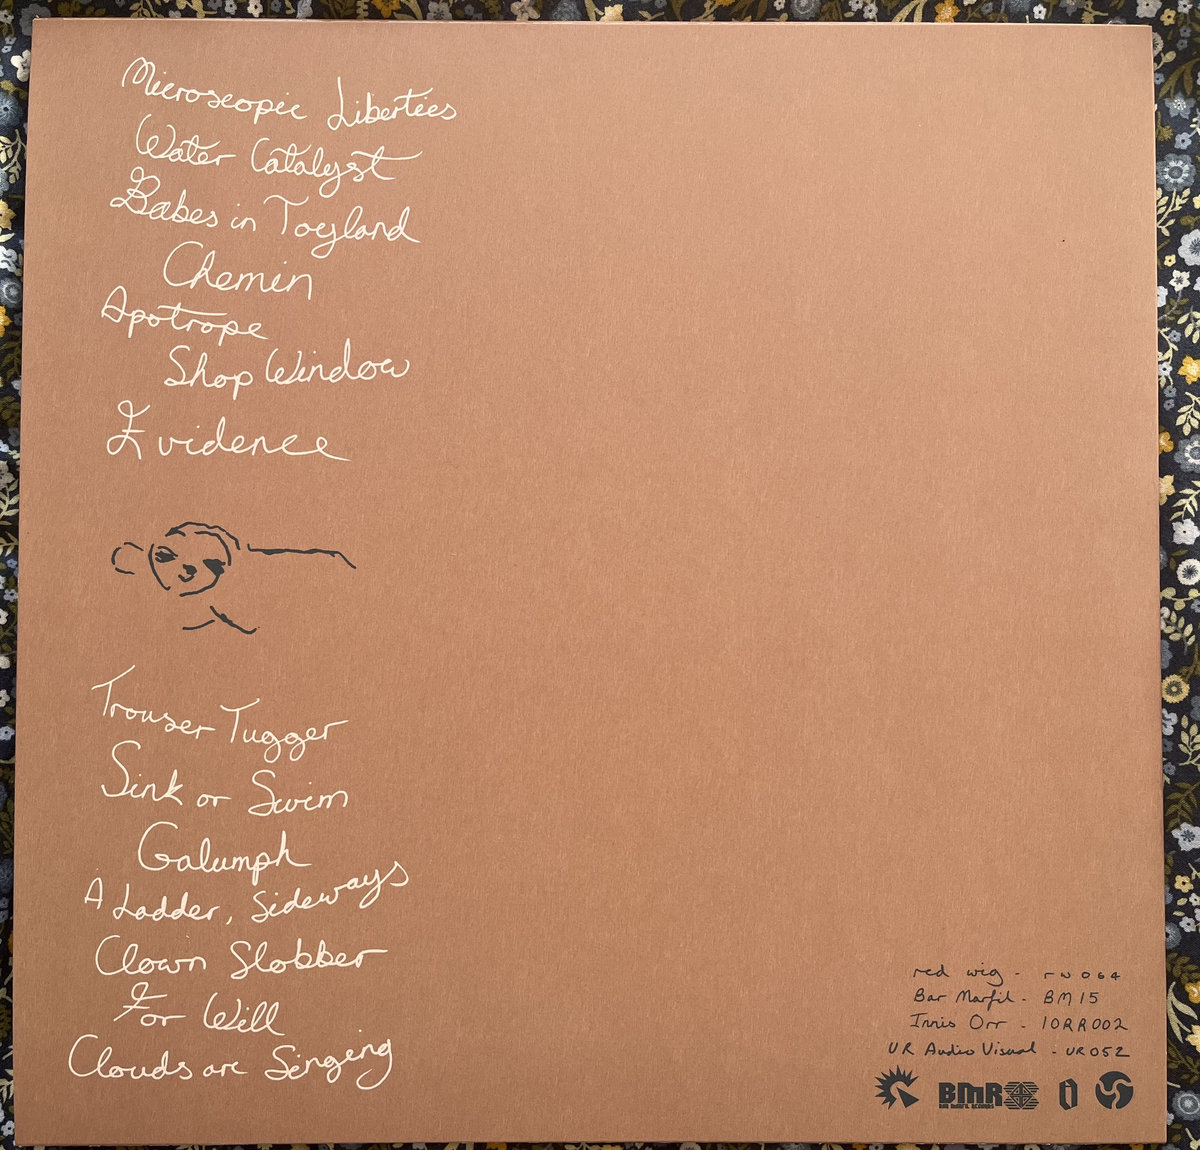 Microscopic Liberties
Water Catalyst
Babes in Toyland
Chemin
Apotrope
Shop Window
Evidence
Trouser Tugger
Sink or Swim
Galumph
A Ladder, Sideways
Clown Slobber
For Will
Clouds are Singing
red wig - rw064
Bar Marfil - BM15
Innis Orr - IORR002
UR Audio Visual - UR052
BMR